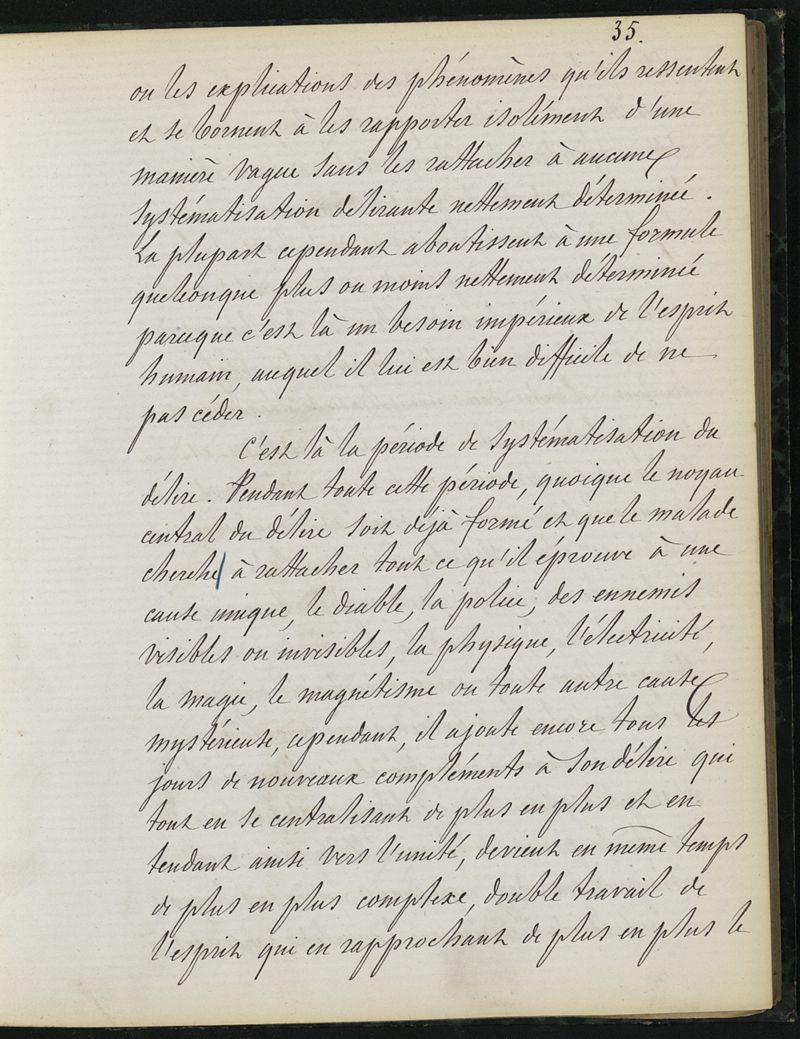 35.
ou les explications des phénomènes qu'ils ressentent
et se bornent à les rapporter isolément d'une
manière vague sans les rattacher à aucune
systématisation délirante nettement déterminée.
La plupart cependant aboutissent à une formule
quelconque plus ou moins nettement déterminée
parceque c'est là un besoin impérieux de l'esprit
humain, auquel il lui est bien difficile de ne
pas céder.
C'est là la période de systématisation du
délire. Pendant toute cette période, quoique le noyau
central du délire soit déjà formé et que le malade
cherche à rattacher tout ce qu'il éprouve à une
cause unique, le diable, la police, des ennemis
visibles ou invisibles, la physique, l'électricité,
la magie, le magnétisme ou toute autre cause
mystérieuse, cependant, il ajoute encore tous les
jours de nouveaux compléments à son délire qui
tout en se centralisant de plus en plus et en
tendant ainsi vers l'unité, devient en même temps
de plus en plus complexe, double travail de
l'esprit qui en rapprochant de plus en plus le